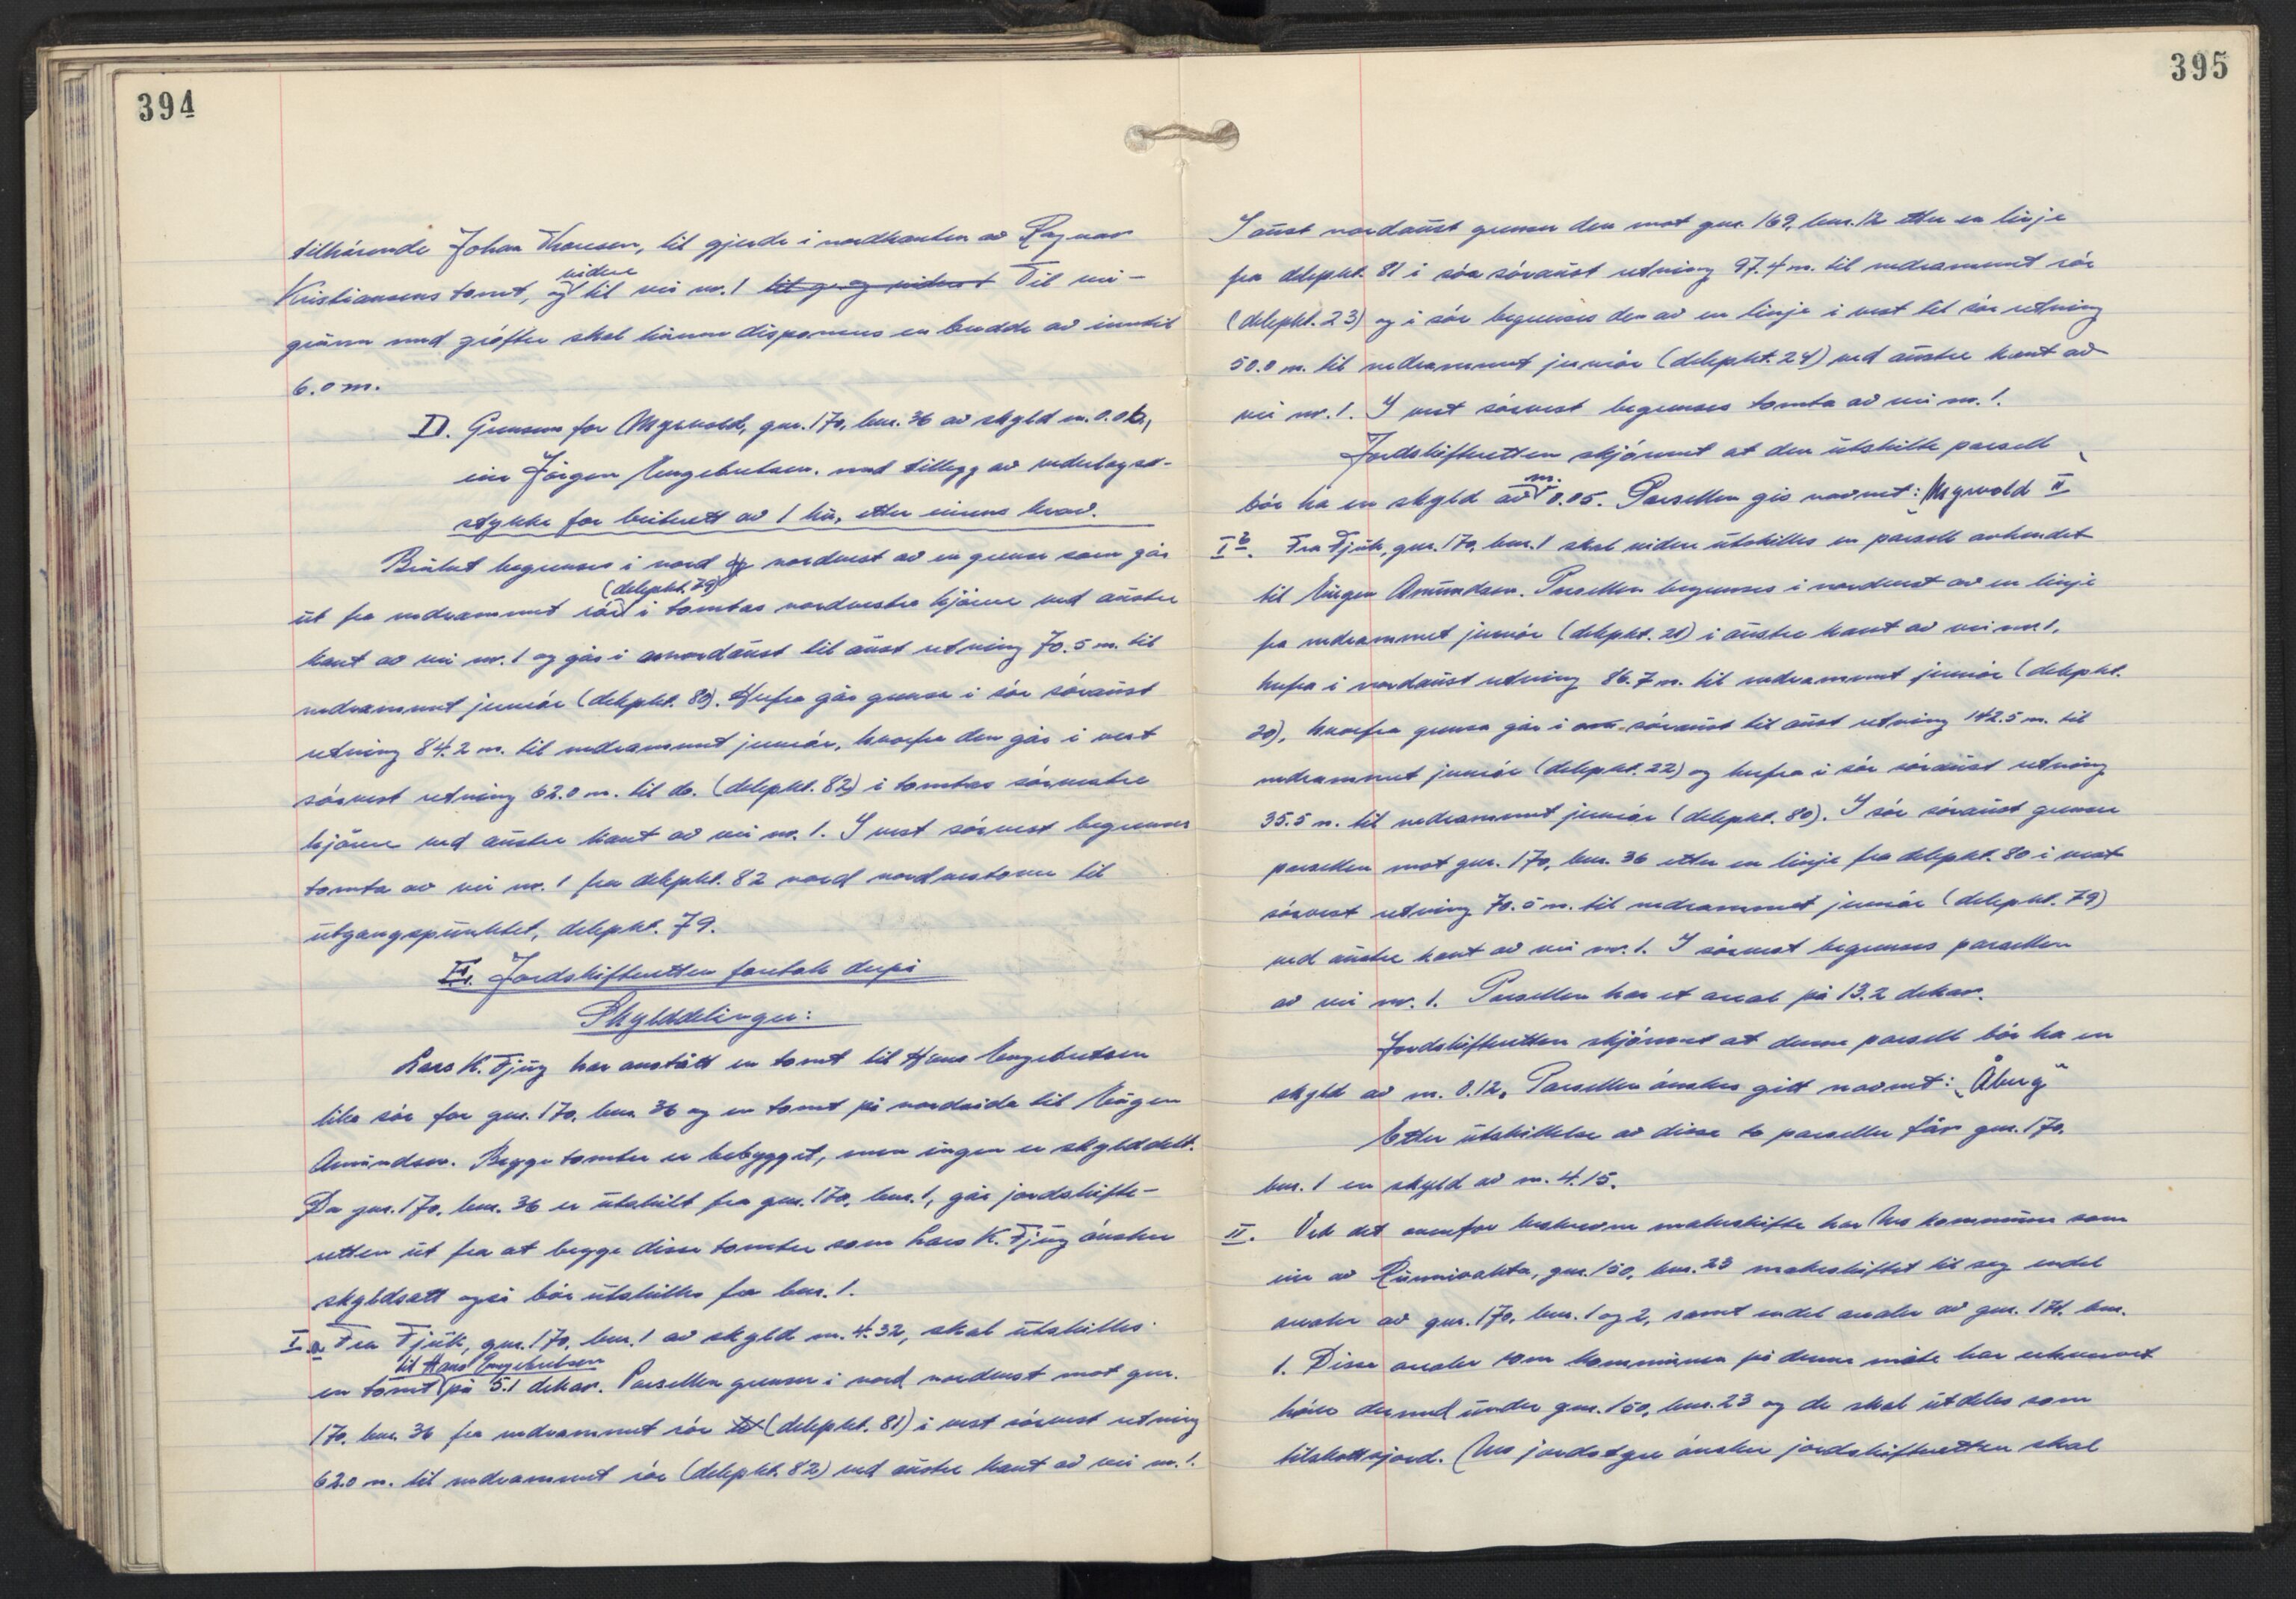 394
tilhörende Johan Thoresen, til gjerde i nordkanten av Ragnar
Kristiansens tomt, og videre til vei nr. 1 til g. og videre t Til vei-
grunn med grøfter skal kunne disponeres en bredde av inntil
6.0 m.
D. Grensene for Myrvold, gnr. 170, bnr. 36 av skyld m. 0.06,
eier Jörgen Engebretsen. med tillegg av vederlags-
stykke for beiterett av 1 ku, etter eiens krav.
Bruket begrenses i nord og nordvest av en grense som går
ut fra nedrammet rör (delepkt. 79) i tomtas nordvestre hjörne ved austre
kant av vei nr. 1 og går i nordaust til aust retning 70.5 m. til
nedrammet jernrör (delepkt. 80). Herfra går grensa i sör söraust
retning 84.2 m. til nedrammet jernrör, hvorfra den går i vest
sörvest retning 62.0 m. til do. (delepkt. 82) i tomtas sörvestre
hjörne ved austre kant av vei nr. 1. I vest sörvest begrenses
tomta av vei nr. 1 fra delepkt. 82 nord nordvestover til
utgangspunktet, delepkt. 79.
E. Jordskifteretten foretok derpå
Skylddelinger:
Lars K. Fjug har avstått en tomt til Hans Engebretsen
like sör for gnr. 170, bnr. 36 og en tomt på nordsida til Eugen
Amundsen. Begge tomter er bebygget, men ingen er skylddelt.
Da gnr. 170, bnr. 36 er utskilt fra gnr. 170, bnr. 1, går jordskifte-
retten ut fra at begge disse tomter som Lars K. Fjug ønsker
skyldsatt også bör utskilles fra bnr. 1.
I.a Fra Fjuk, gnr. 170, bnr. 1 av skyld m. 4.32, skal utskilles
en tomt til Hans Engebretsen på 5.1 dekar. Parsellen grenser i nord nordvest mot gnr.
170, bnr. 36 fra nedrammet rör (delepkt. 81) i vest sörvest retning
62.0 m. til nedrammet rör (delepkt. 82) ved austre kant av vei nr. 1.
395
I aust nordaust grenser den mot gnr. 169, bnr. 12 etter en linje
fra delepkt. 81 i sör söraust retning 97.4 m. til nedrammet rör
(delepkt. 23) og i sör begrenses den av en linje i vest til sör retning
50.0 m. til nedrammet jernrör (delepkt. 24) ved austre kant av
vei nr. 1. I vest sörvest begrenses tomta av vei nr. 1.
Jordskifteretten skjønnet at den utskilte parsell
bör ha en skyld av m. 0.05. Parsellen gis navnet: „Myrvold II"
I b. Fra Fjuk, gnr. 170, bnr. 1 skal videre utskilles en parsell avhendet
til Eugen Amundsen. Parsellen begrenses i nordvest av en linje
fra nedrammet jernrör (delepkt. 21) i austre kant av vei nr. 1,
herfra i nordaust retning 86.7 m. til nedrammet jernrör (delepkt.
20), hvorfra grensa går i söraust til aust retning 142.5 m. til
nedrammet jernrör (delepkt. 22) og herfra i sör söraust retning
35.5 m. til nedrammet jernrör (delepkt. 80). I sör söraust grenser
parsellen mot gnr. 170, bnr. 36 etter en linje fra delepkt. 80 i vest
sörvest retning 70.5 m. til nedrammet jernrör (delepkt. 79)
ved austre kant av vei nr. 1. I sörvest begrenses parsellen
av vei nr. 1. Parsellen har et areal på 13.2 dekar.
Jordskifteretten skjønnet at denne parsell bör ha en
skyld av m. 0.12. Parsellen ønskes gitt navnet: „Åberg"
Etter utskillelse av disse to parseller får gnr. 170,
bnr. 1 en skyld av m. 4.15.
II. Ved det ovenfor beskrevne makeskifte har Nes kommune som
eier av Runnivakta, gnr. 150, bnr. 23 makeskiftet til seg endel
arealer av gnr. 170, bnr. 1 og 2, samt endel arealer av gnr. 174, bnr.
1. Disse arealer som kommunen på denne måte har ervervet
hörer dermed under gnr. 150, bnr. 23 og de skal utdeles som
tilskottsjord. Nes jordstyre ønsker jordskifteretten skal